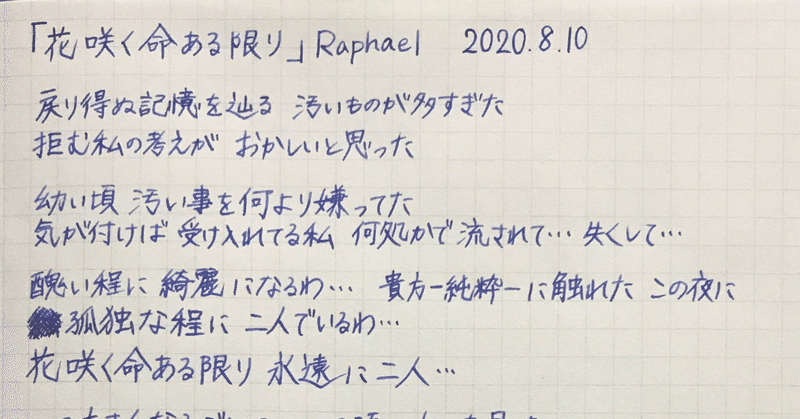 「花咲く命ある限り」Raphael 2020.8.10
戻り得ぬ記憶を辿る 汚いものが多すぎた
拒む私の考えが おかしいと思った
幼い頃 汚い事を何より嫌ってた
気が付けば 受け入れてる私 何処かで流されて… 失くして…
醜い程に 綺麗になるわ… 貴方ー純粋ーに触れた この夜に
孤独な程に 二人でいるわ…
花咲く命ある限り 永遠に二人…